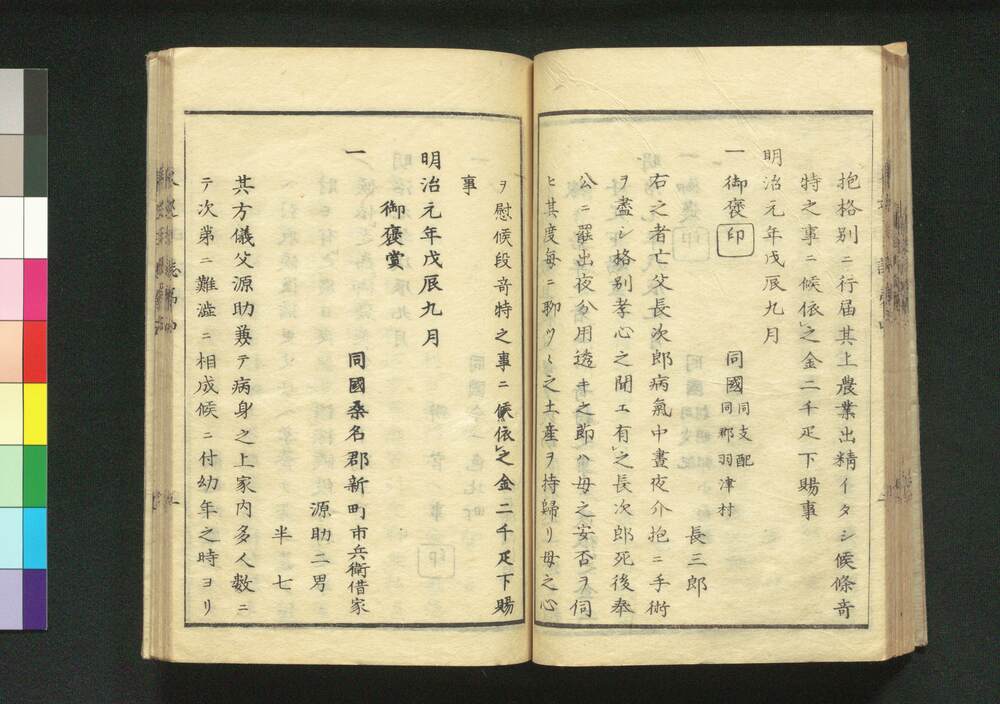 抱格別ニ行届其上農業出精イタシ候條奇
特之事ニ候依之金二千疋下賜事
明治元年戊辰九月
一 御褒 印 同國同支配同郡羽津村
長三郎
右之者亡父長次郎病氣中晝夜介抱ニ手術
ヲ盡シ格別孝心之聞エ有之長次郎死後奉
公ニ罷出夜分用透キ之節ハ母之安否ヲ伺
ヒ其度每ニ聊ツヽ之土産ヲ持歸リ母之心
ヲ慰候段奇特之事ニ候依之金二千疋下賜
事
明治元年戊辰九月
御褒賞
一 同國桑名郡新町市兵衛借家
源助二男
半七
其方儀父源助兼テ病身之上家内多人數ニ
テ次第ニ難澁ニ相成候ニ付幼年之時ヨリ